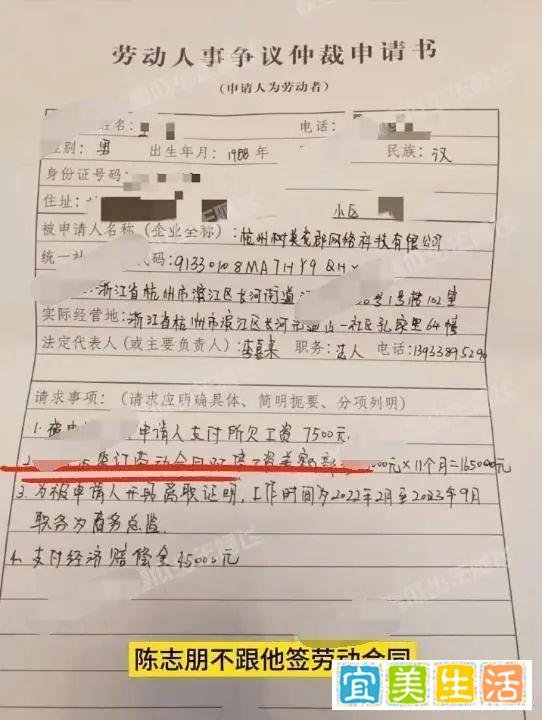 劳动人事争议仲裁申请书
(申请人为劳动者)
姓名: 电话:
性别: 男 出生年月: 1988年 民族: 汉
身份证号码:
住址: 小区
被申请人名称(企业全称): 杭州树英龙郡网络科技有限公司
统一社 代码: 91330108MA7HY9QHX
浙江省杭州市滨江区长河街道 号1号楼102室
实际经营地: 浙江省杭州市滨江区长河街道山一社区孔家里64幢
法定代表人(或主要负责人): 职务: 法人 电话:
请求事项: (请求应明确具体、简明扼要、分项列明)
1. 被申 申请人支付所欠工资 7500元
2. 签订劳动合同双倍工资差额部 000元×11个月=165000元
3. 为被申请人开具离职证明,工作时间为2022年2月至2023年9月
职务为商务总监
4. 支付经济赔偿金45000元
陈志朋不跟他签劳动合同
宜美生活